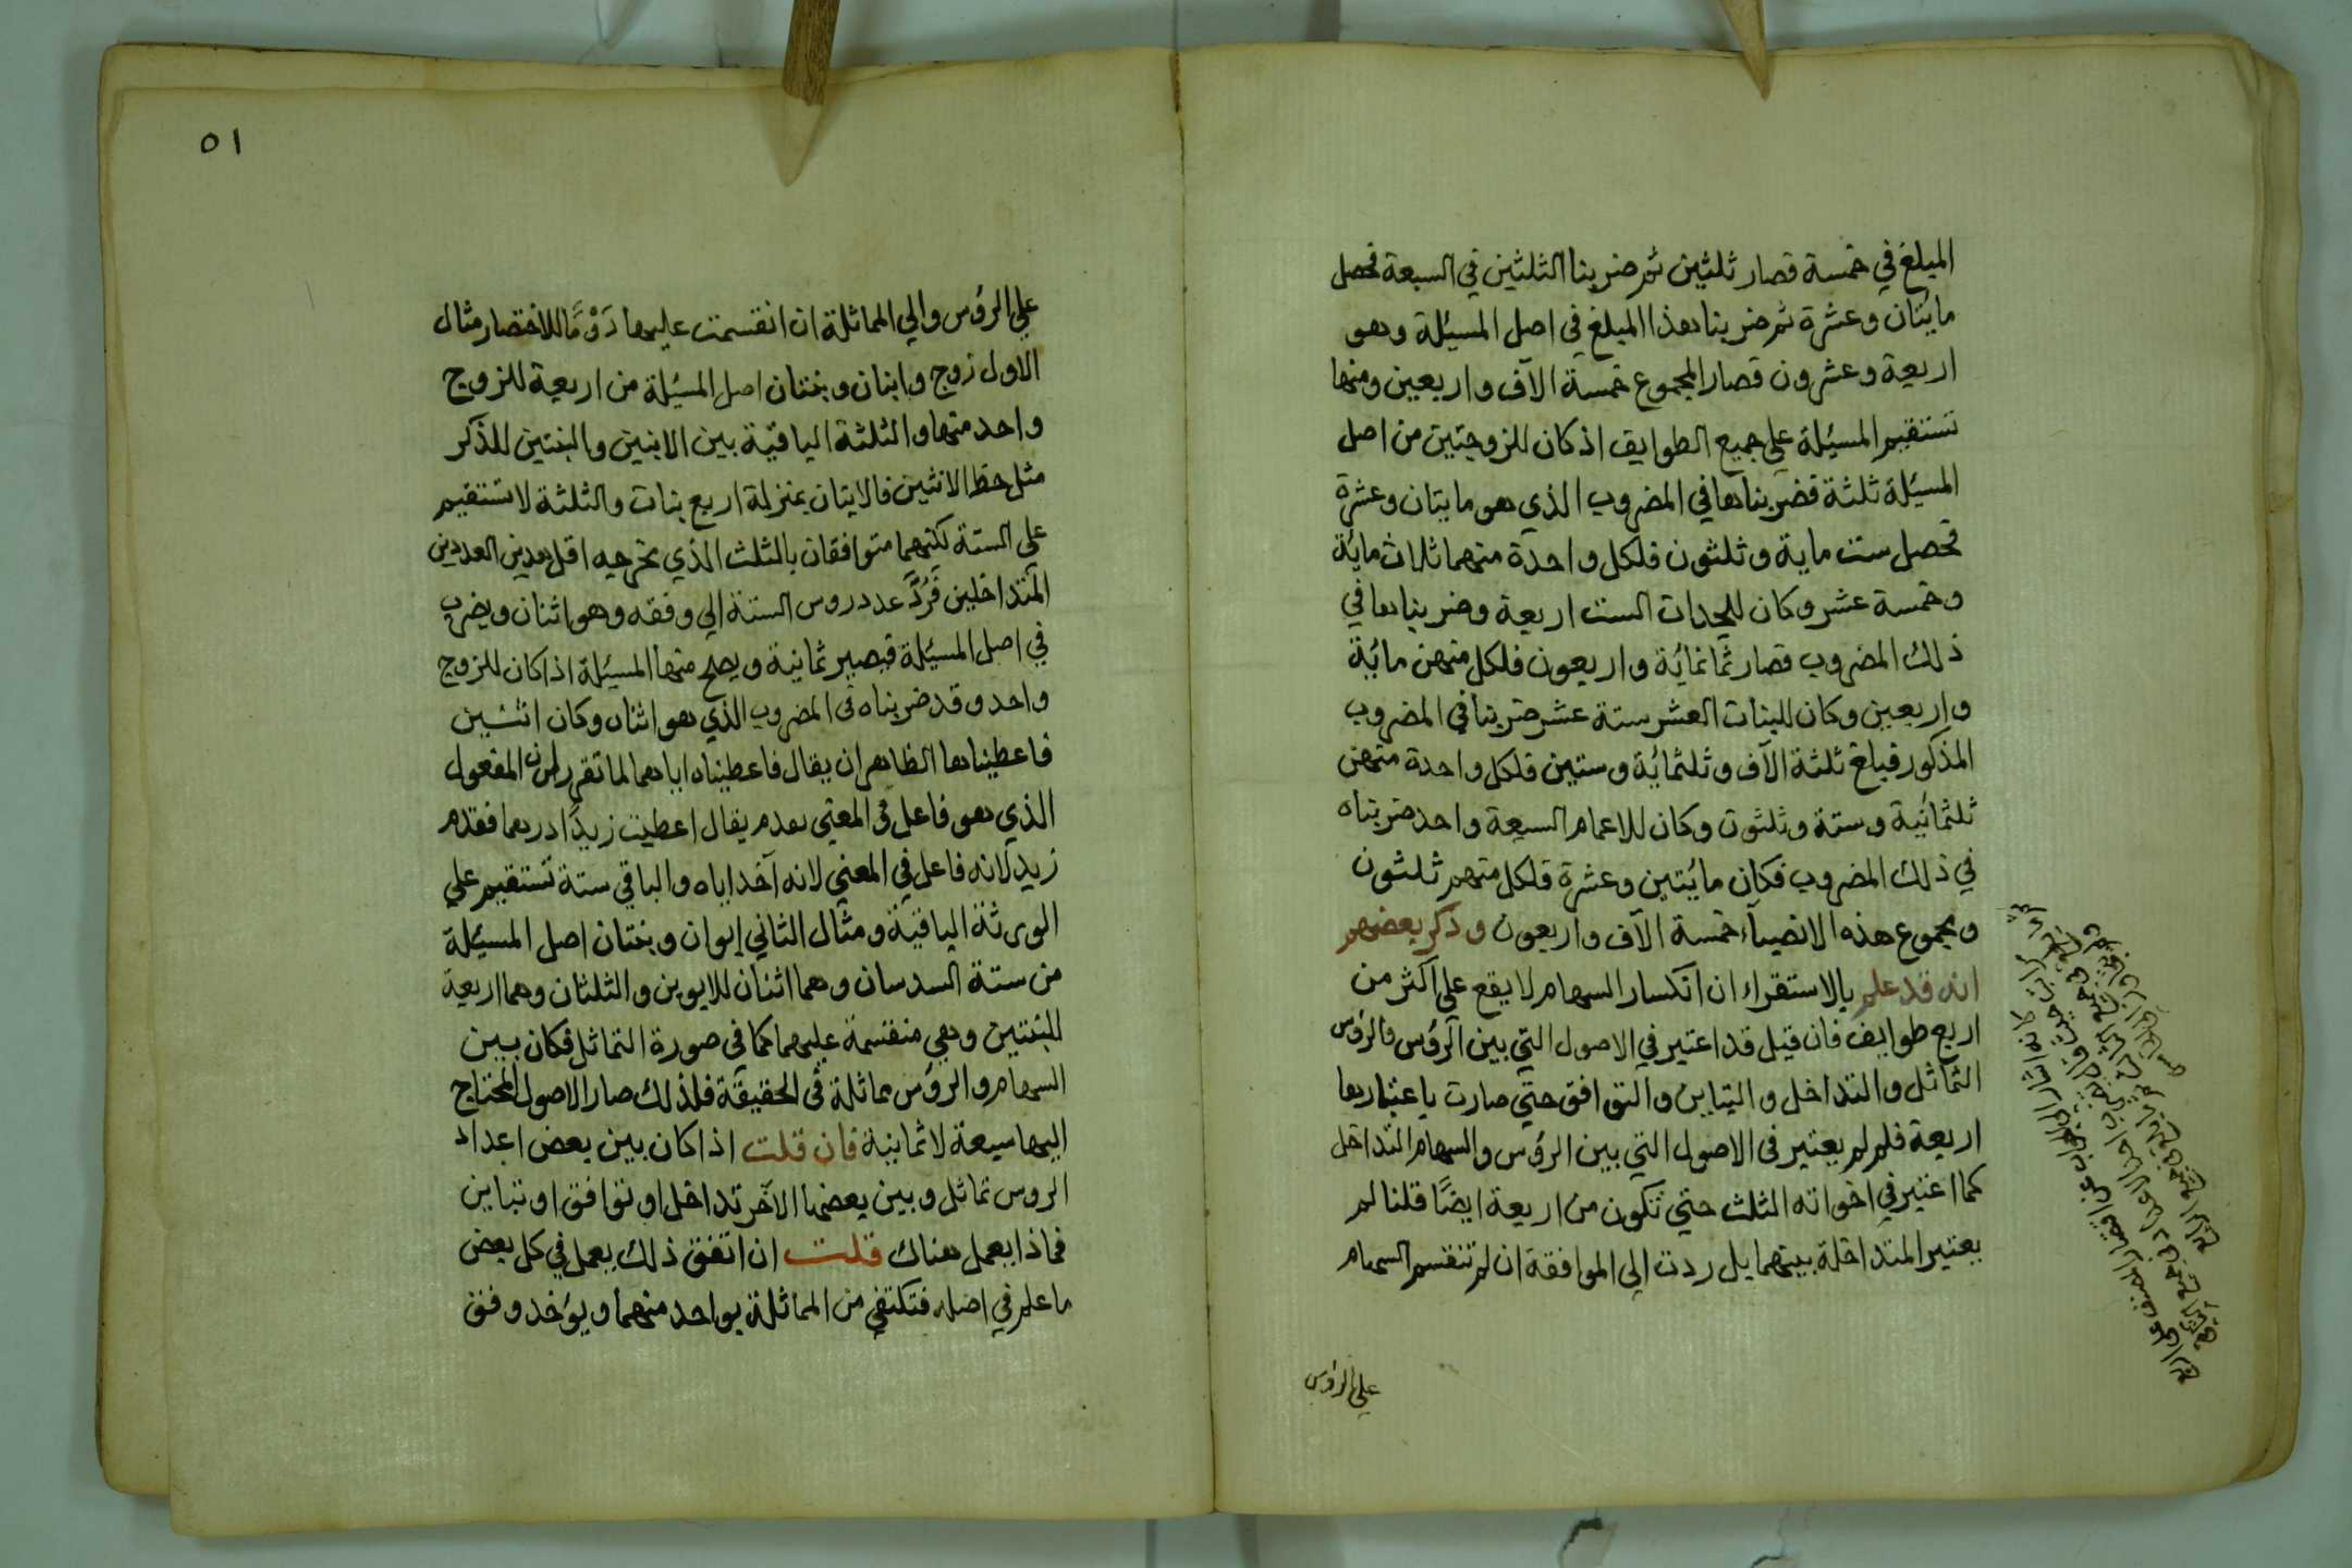 المبلغ في خمسة فصار ثلثين ثم ضربنا الثلثين في السبعة فحصل
مايتان وعشرة ثم ضربنا هذا المبلغ في اصل المسئلة وهو
اربعة وعشرون فصار المجموع خمسة الآف واربعين ومنها
تستقيم المسئلة علي جميع الطوايف اذ كان للزوجتين من اصل
المسئلة ثلثة فضربناها في المضروب الذي هو مايتان وعشرة
فحصل ست ماية وثلثون فلكل واحدة منهما ثلاث مائة
وخمسة عشر وكان للجدات الست اربعة وضربناها في
ذلك المضروب فصار ثمانمائة واربعون فلكل منهن مائة
واربعين وكان للبنات العشر ستة عشر ضربنا في المضروب
المذكور فبلغ ثلثة الآف وثلثمائة وستين فلكل واحدة منهن
ثلثمائية وستة وثلثون وكان للاعمام السبعة واحد ضربناه
في ذلك المضروب فكان مائتين وعشرة فلكل منهم ثلثون
ومجموع هذه الانصباء خمسة الآف واربعون وذكر بعضهم
انه قد علم بالاستقراء ان انكسار السهام لا يقع علي اكثر من
اربع طوايف فان قيل قد اعتبر في الاصول التي بين الرؤس والرؤس
التماثل والتداخل والتباين والتوافق حتي صارت باعتبارها
اربعة فلم لم يعتبر في الاصول التي بين الرؤس والسهام التداخل
كما اعتبر في اخواته الثلث حتي تكون من اربعة ايضًا قلنا لم
يعتبر المتداخلة بينهما بل ردت الي الموافقة ان لم تنقسم السهام
علي الرؤس
٥١
علي الرؤس والي المماثلة ان انقسمت عليها رَوْمًا للاختصار مثال
الاول زوج وابنان وبنتان اصل المسئلة من اربعة للزوج
واحد منها والثلثة الباقية بين الابنين والبنتين للذكر
مثل حظ الانثيين فالابنان بمنزلة اربع بنات والثلثة لا تستقيم
علي الستة لكنهما متوافقان بالثلث الذي مخرجه اقل هذين العددين
المتداخلين فَرُدَّ عدد روس الستة الي وفقه وهو اثنان ويضرب
في اصل المسئلة فيصير ثمانية ويصلح منها المسئلة اذا كان للزوج
واحد وقد ضربناه في المضروب الذي هو اثنان وكان اثنين
فاعطيناها الظاهر ان يقال فاعطيناه اياهما لما تقرر ان المفعول
الذي هو فاعل في المعني يقدم يقال اعطيت زيدًا درهما فقدم
زيد لانه فاعل في المعني لانه آخذ اياه والباقي ستة تستقيم علي
الورثة الباقية ومثال الثاني ابوان وبنتان اصل المسئلة
من ستة السدسان وهما اثنان للابوين والثلثان وهما اربعة
للبنتين وهي منقسمة عليهما كما في صورة التماثل فكان بين
السهام والرؤس مماثلة في الحقيقة فلذلك صار الاصول المحتاج
اليها سبعة لا ثمانية فان قلت اذا كان بين بعض اعداد
الروس تماثل وبين بعضها الآخر تداخل او توافق او تباين
فماذا يعمل هناك قلت ان اتفق ذلك يعمل في كل بعض
ما علم في اصله فتكتفي من المماثلة بواحد منهما ويؤخذ وفق